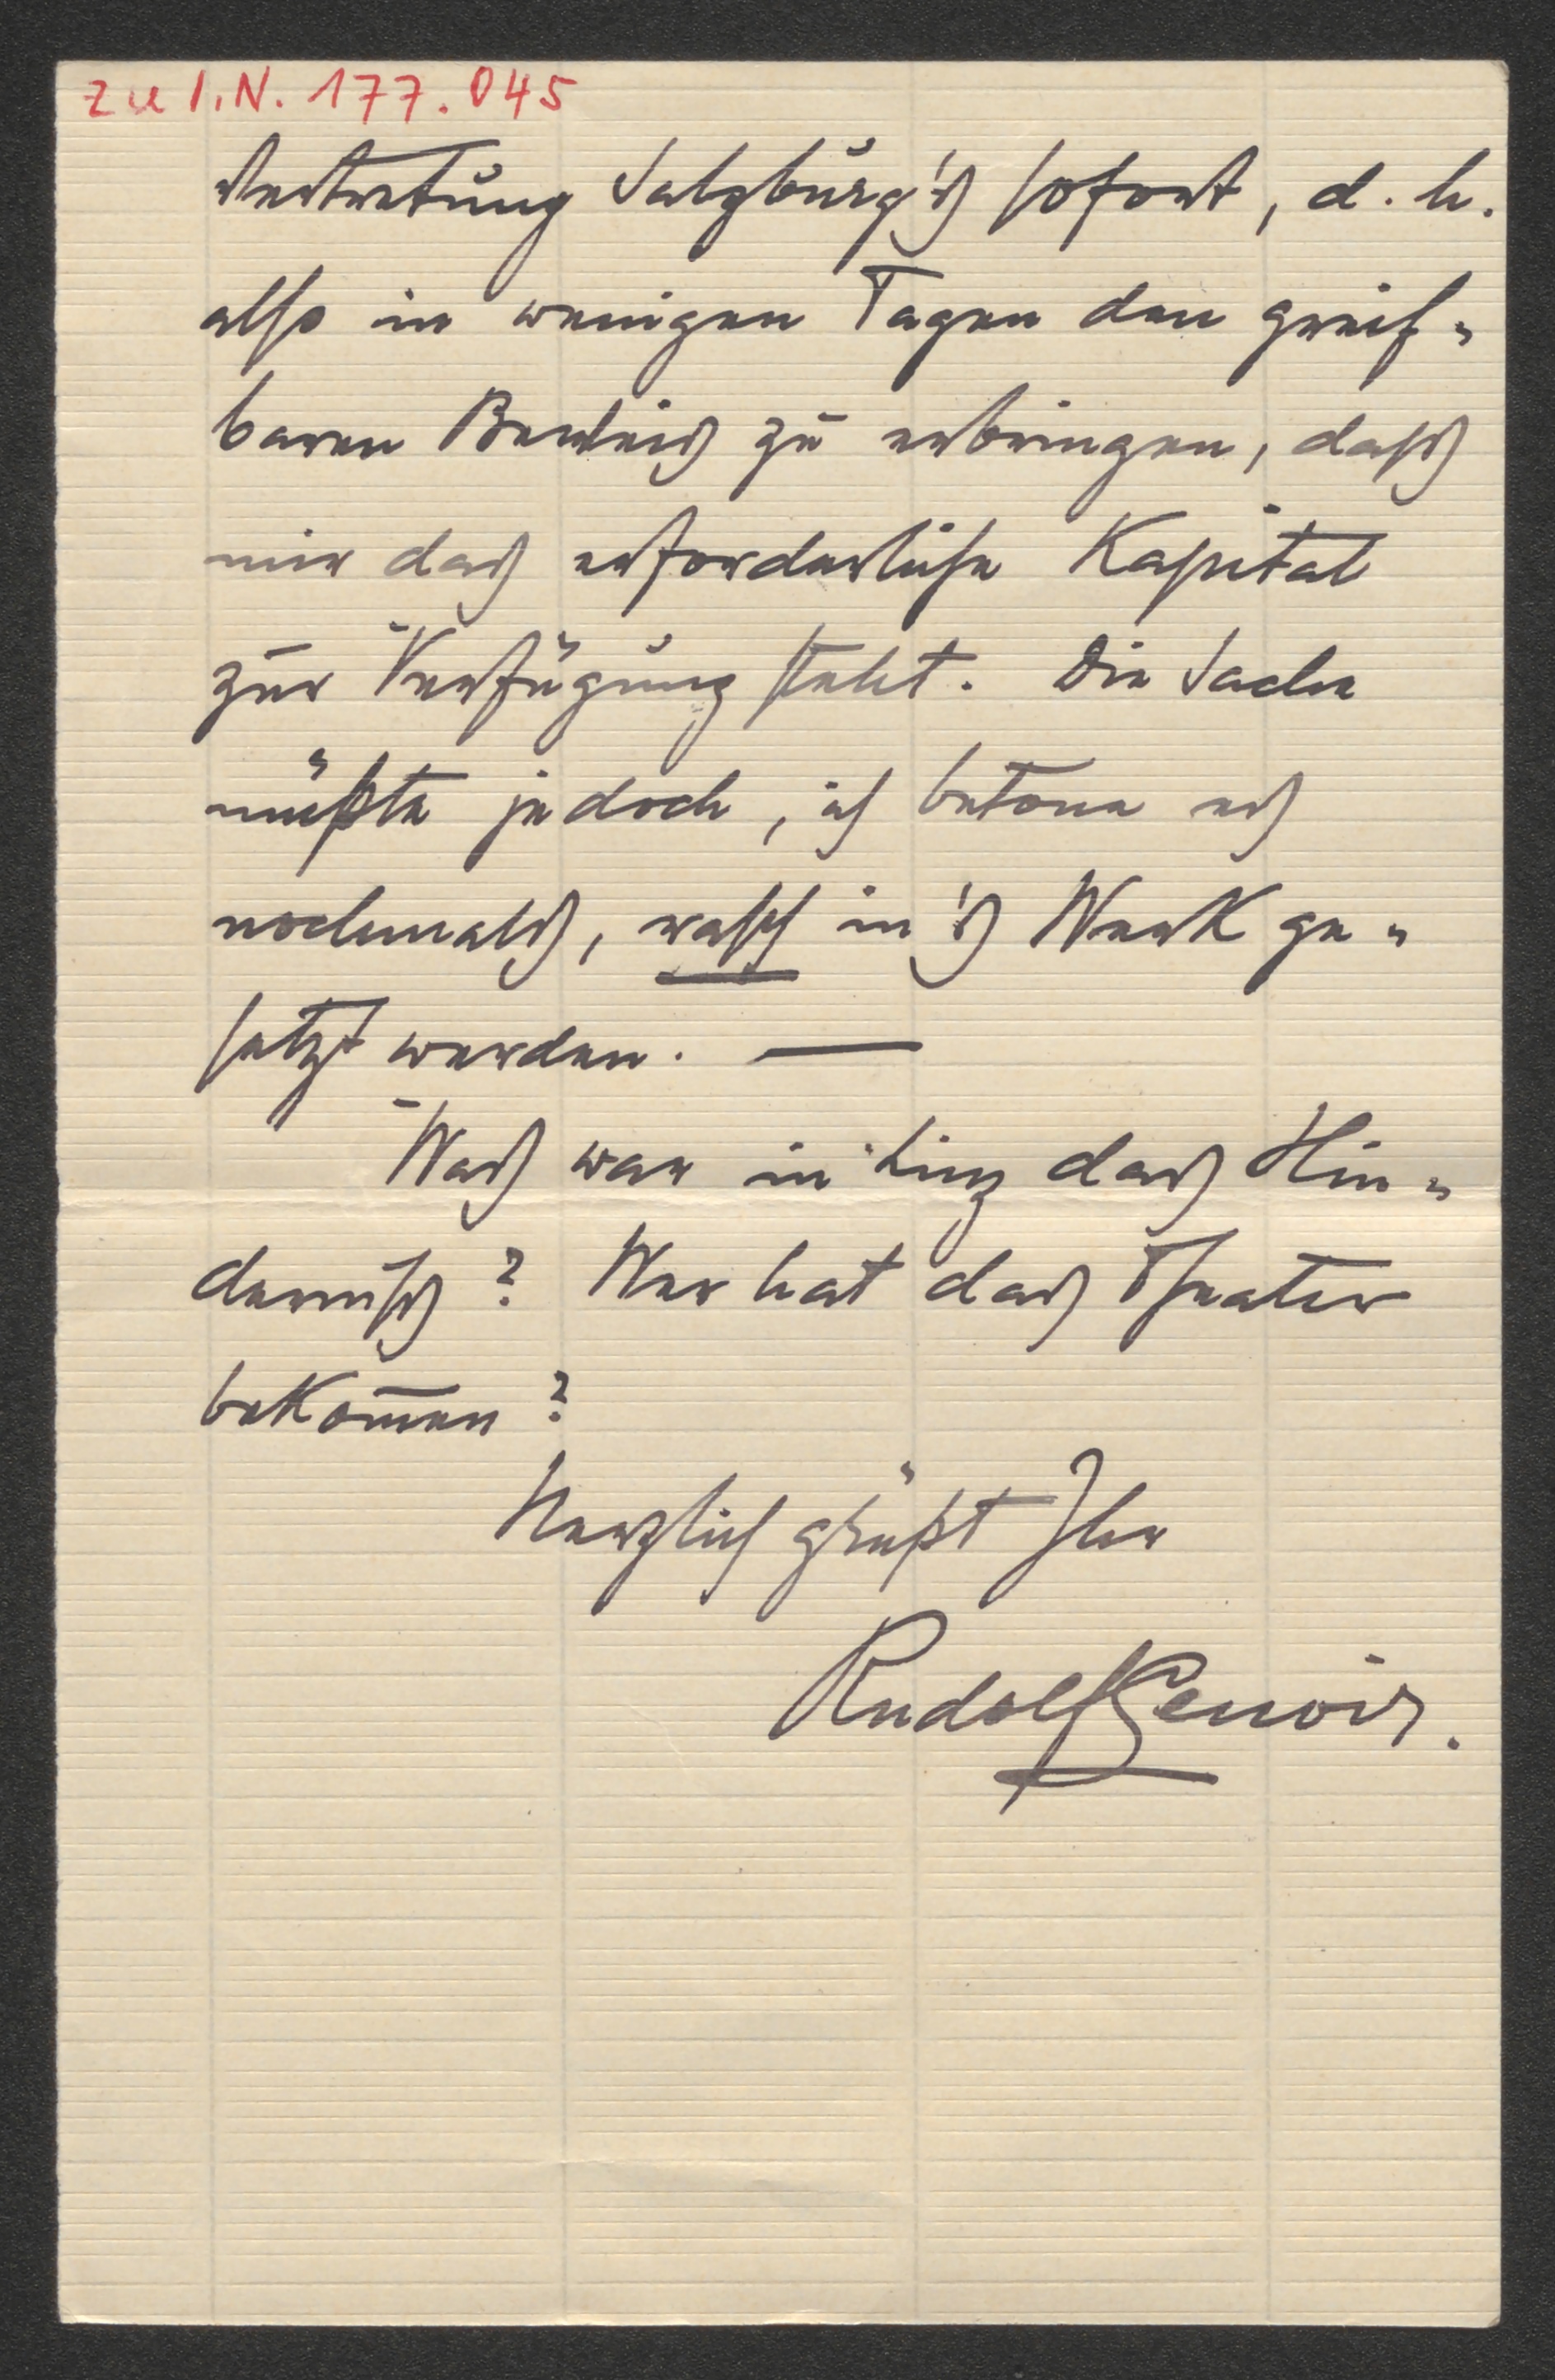 zu I.N. 177.045
Vertretung Salzburg's sofort, d. h.
also in wenigen Tagen den greif-
baren Beweis zu erbringen, dass
mir das erforderliche Kapital
zur Verfügung steht. Die Sache
müßte jedoch, ich betone es
nochmals, rasch in's Werk ge-
setzt werden. —
Was war in Linz das Hin-
dernis? Wer hat das Theater
bekom̄en?
Herzlich grüßt Ihr
Rudolf Benoir.